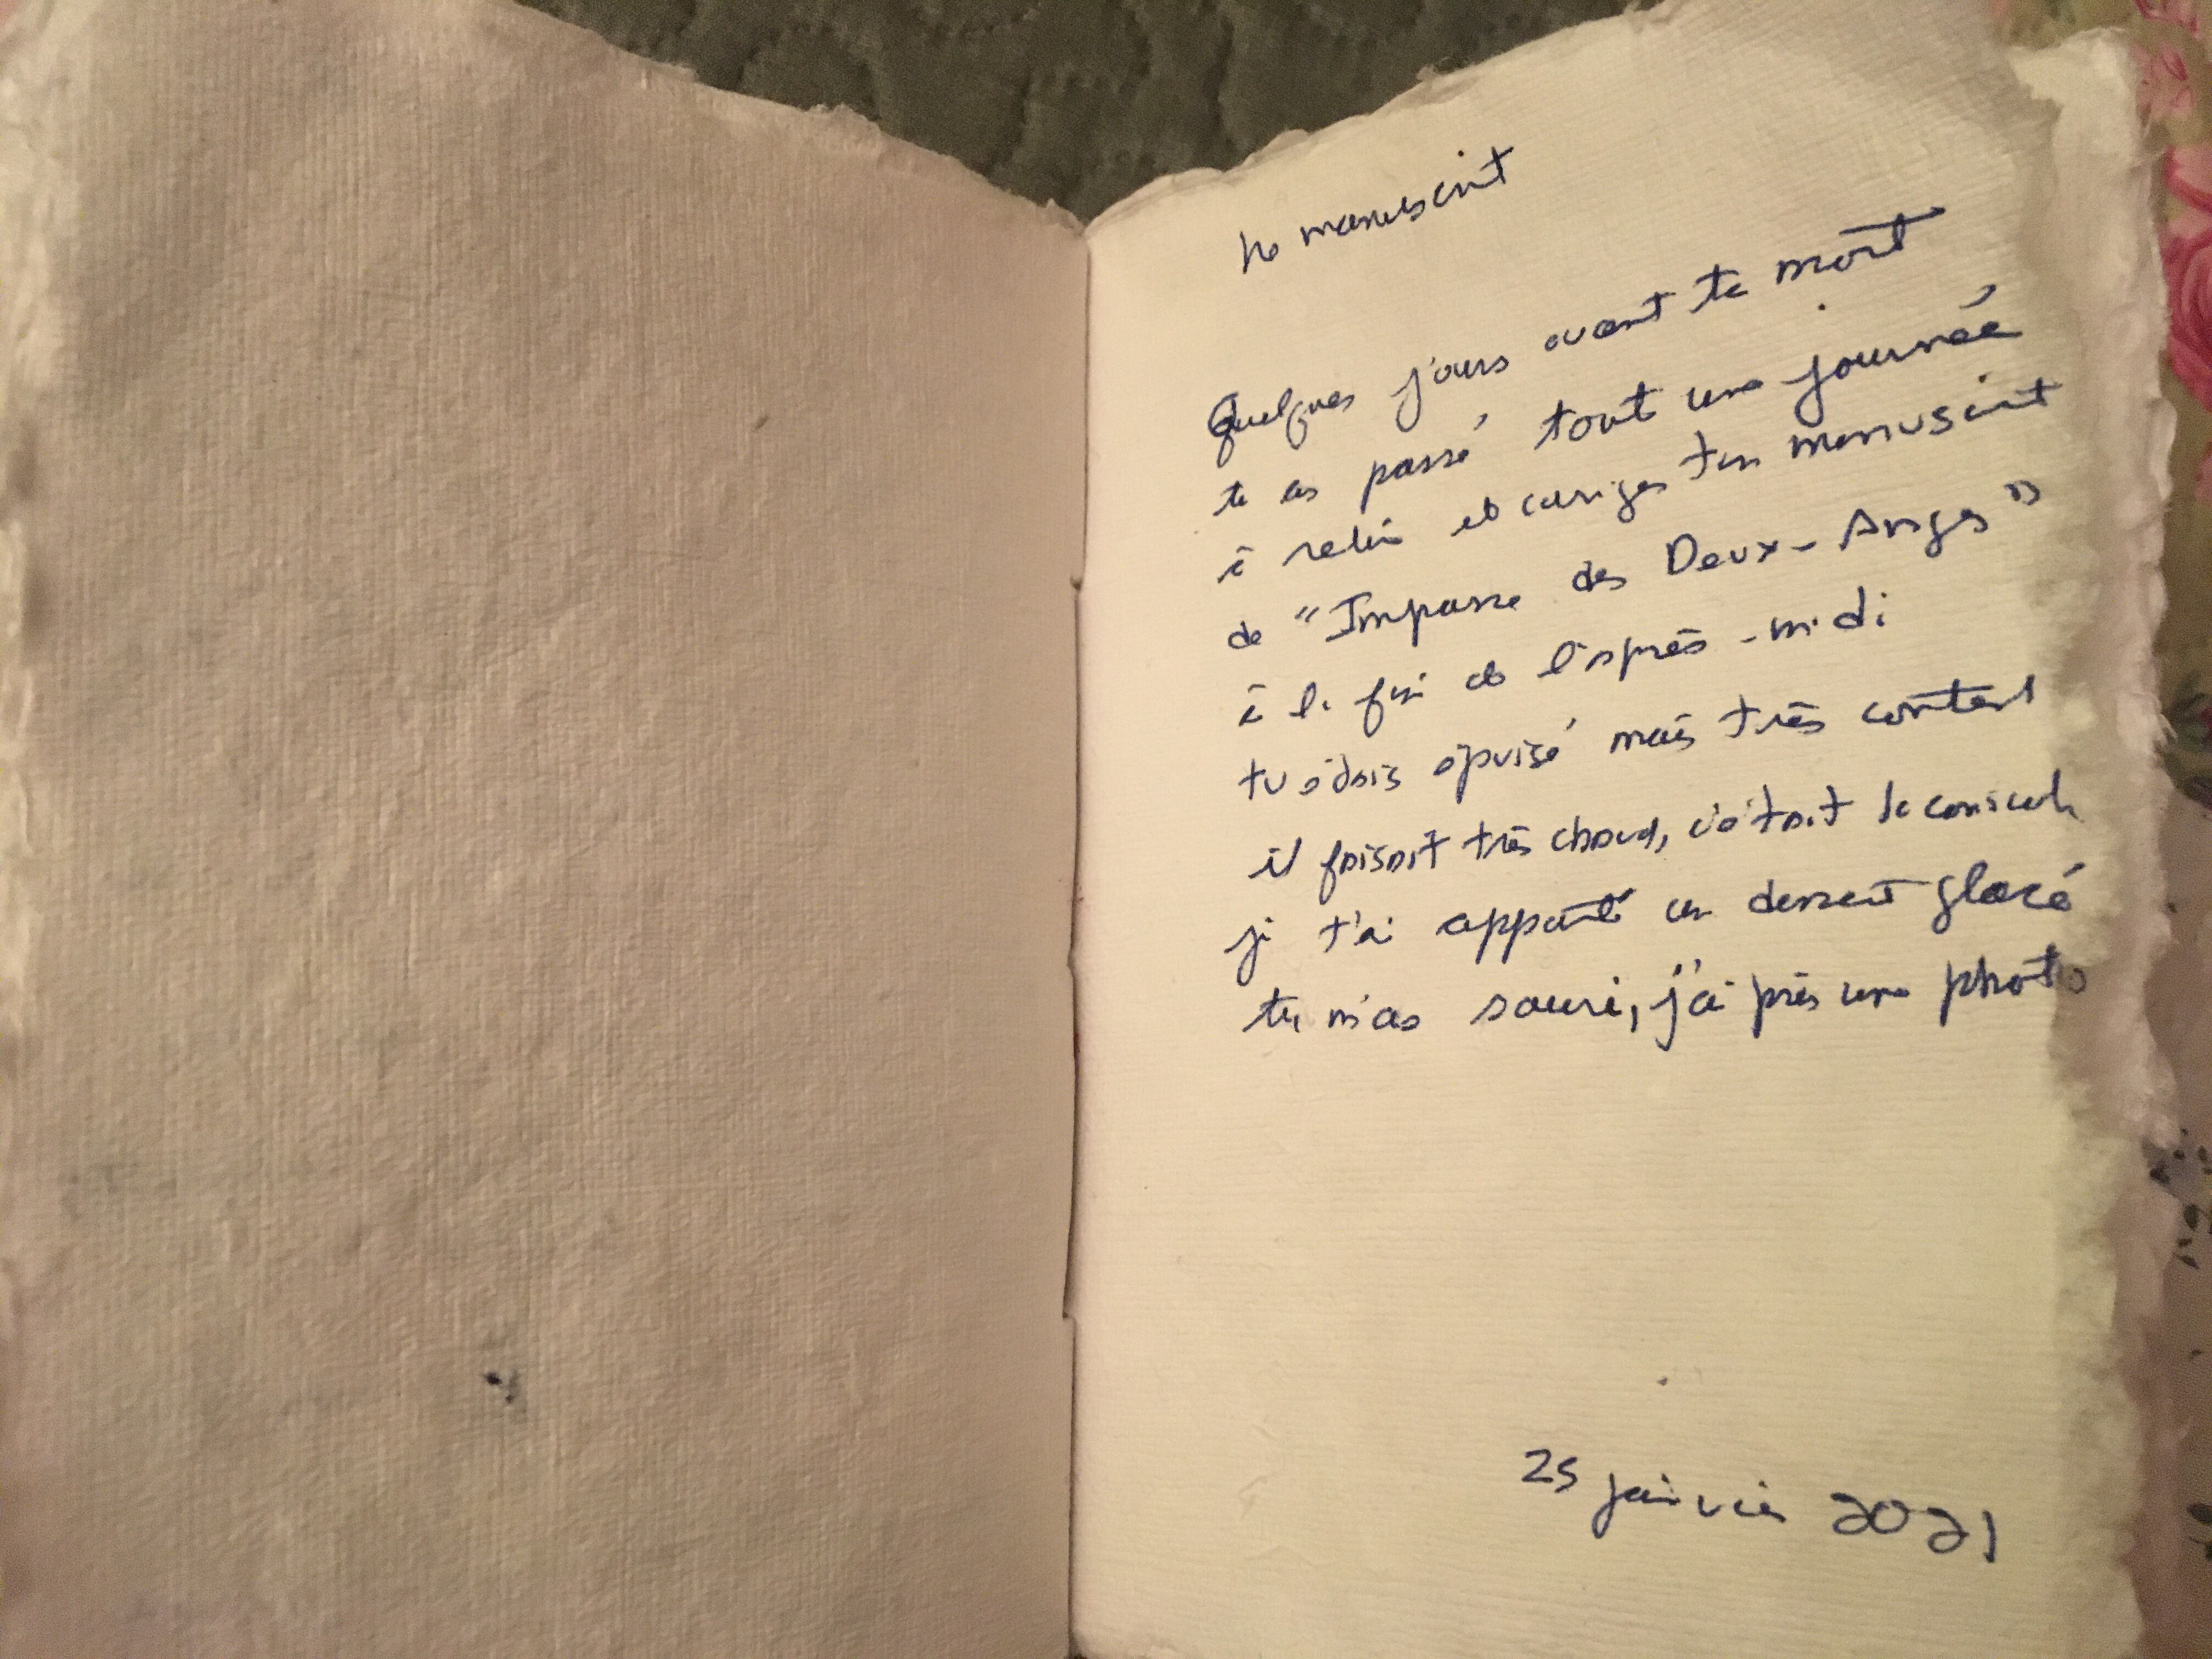 le manuscrit
Quelques jours avant ta mort
tu as passé tout une journée
à relire et corriger ton manuscrit
de "Impasse des Deux-Anges"
à la fin de l'après-midi
tu étais épuisé mais très content
il faisait très chaud, c'était la canicule
je t'ai apporté un dessert glacé
tu m'as souri, j'ai pris une photo
25 janvier 2021